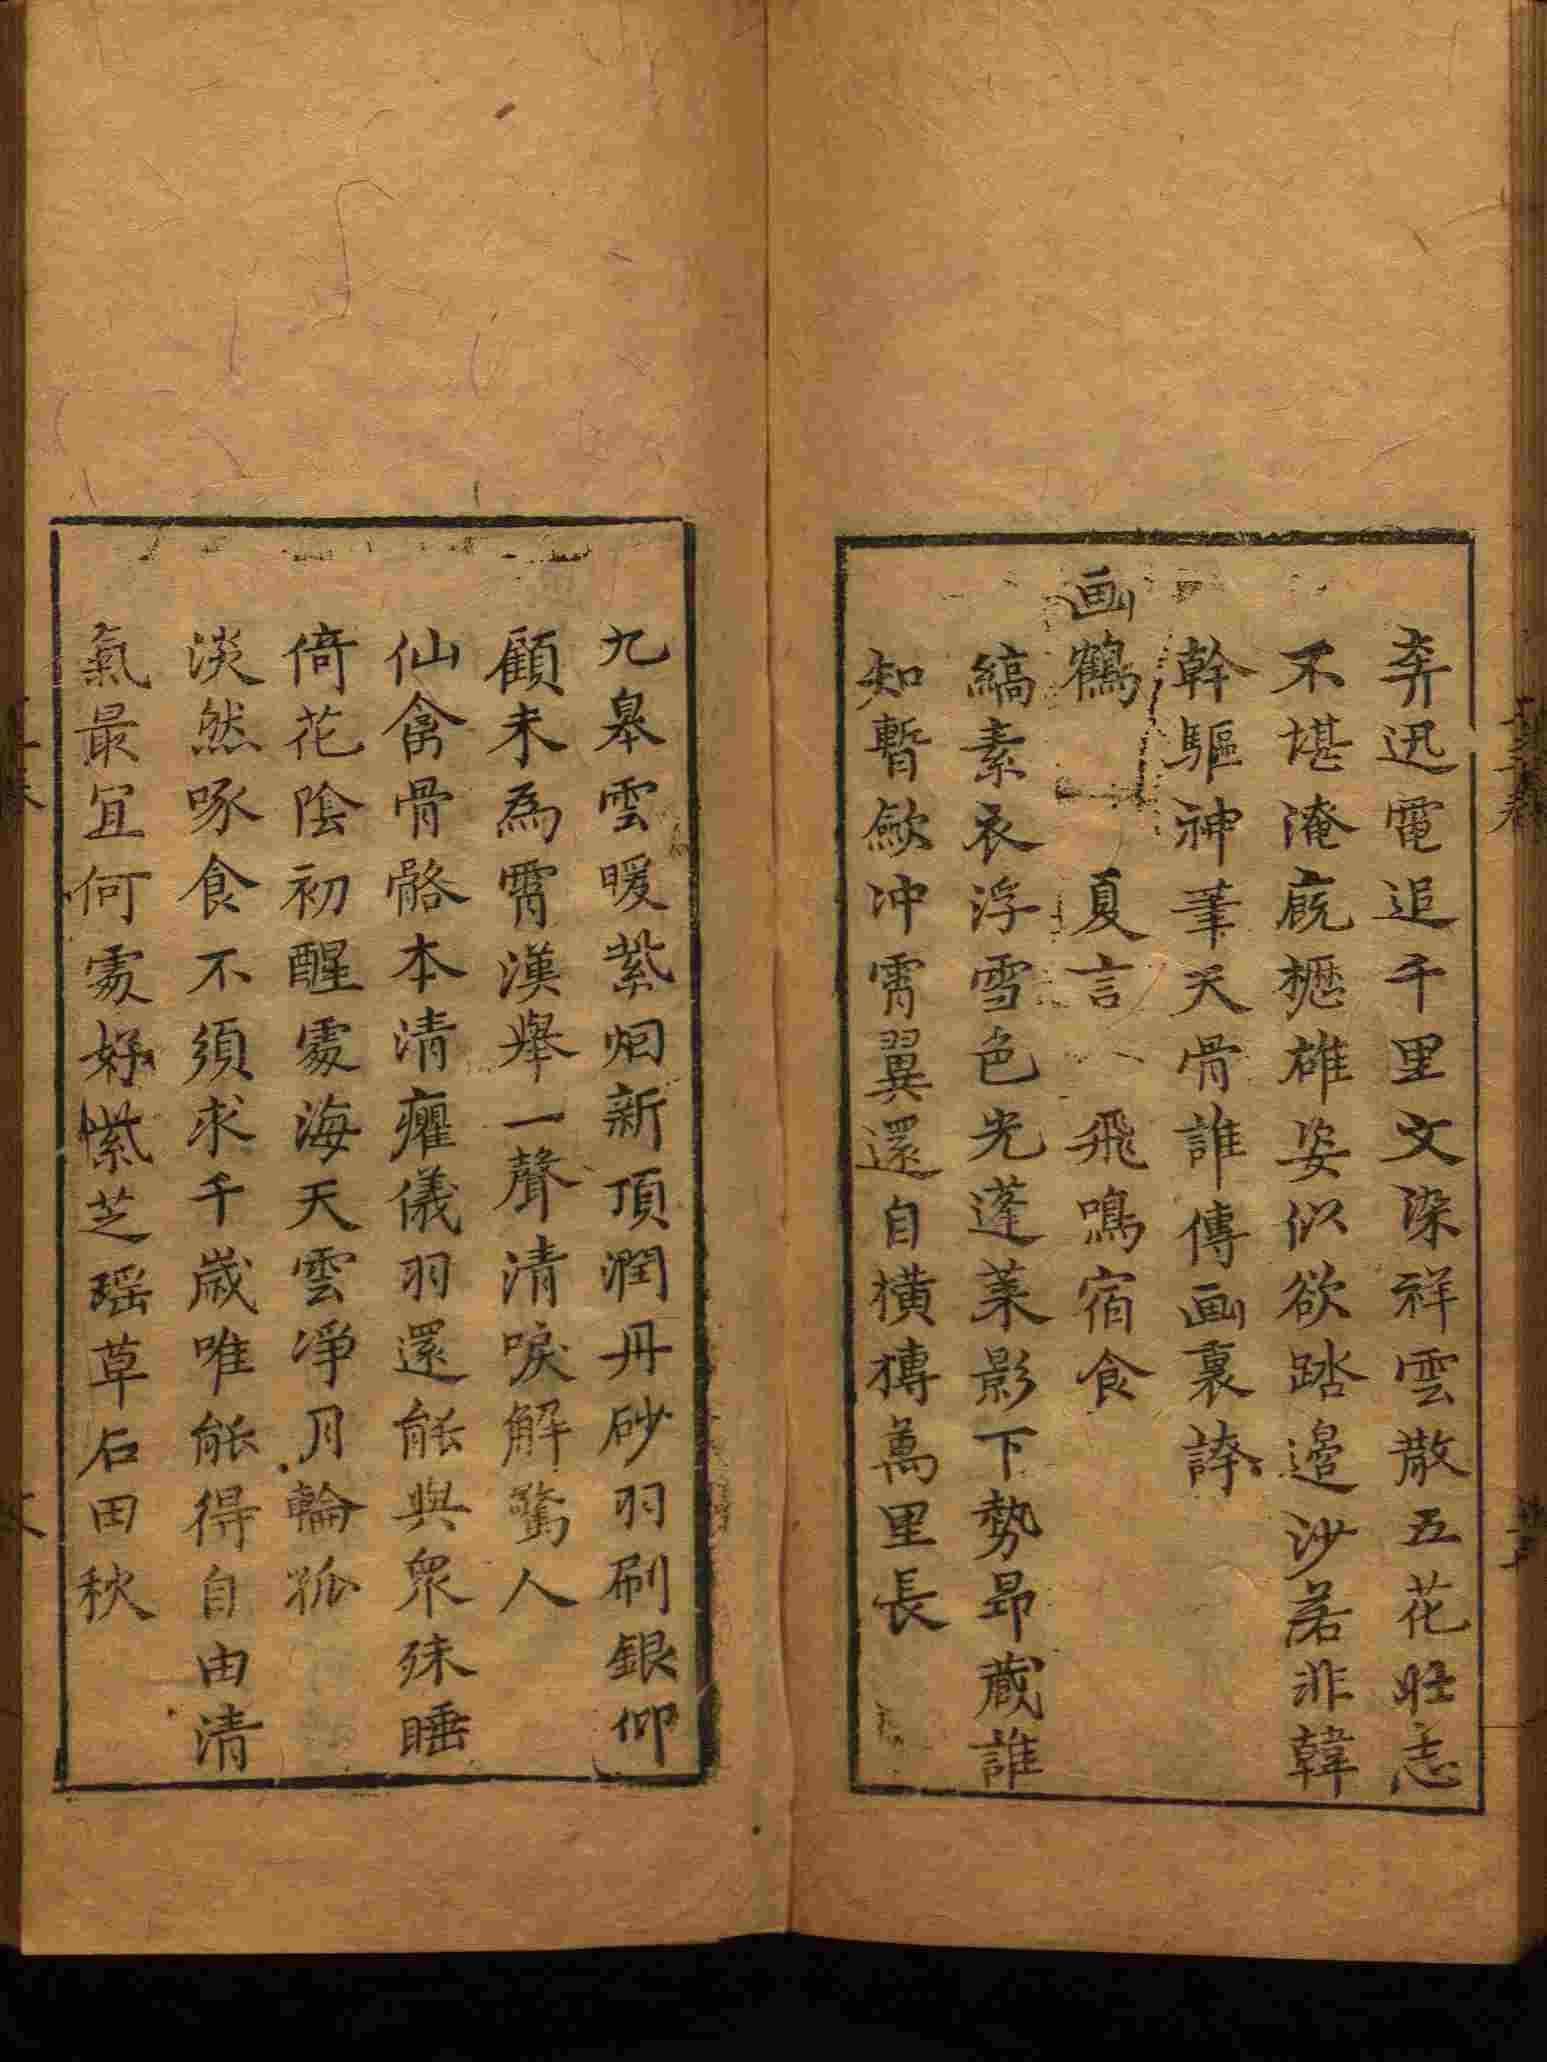 奔迅電追千里文染祥雲散五花壯志
不堪淹廐櫪雄姿似欲踏邊沙若非韓
幹驅神筆天骨誰傳画裏誇
画鶴　夏言　飛鳴宿食
縞素衣浮雪色光蓬萊影下勢昂藏誰
知暫歛冲霄翼還自橫摶萬里長
九皋雲暖紫烟新頂潤丹砂羽刷銀仰
顧未為霄漢舉一聲清唳解驚人
仙禽骨骼本清癯儀羽還能與眾殊睡
倚花陰初醒處海天雲凈月輪孤
淡然啄食不須求千歲唯能得自由清
氣最宜何處好紫芝瑶草石田秋